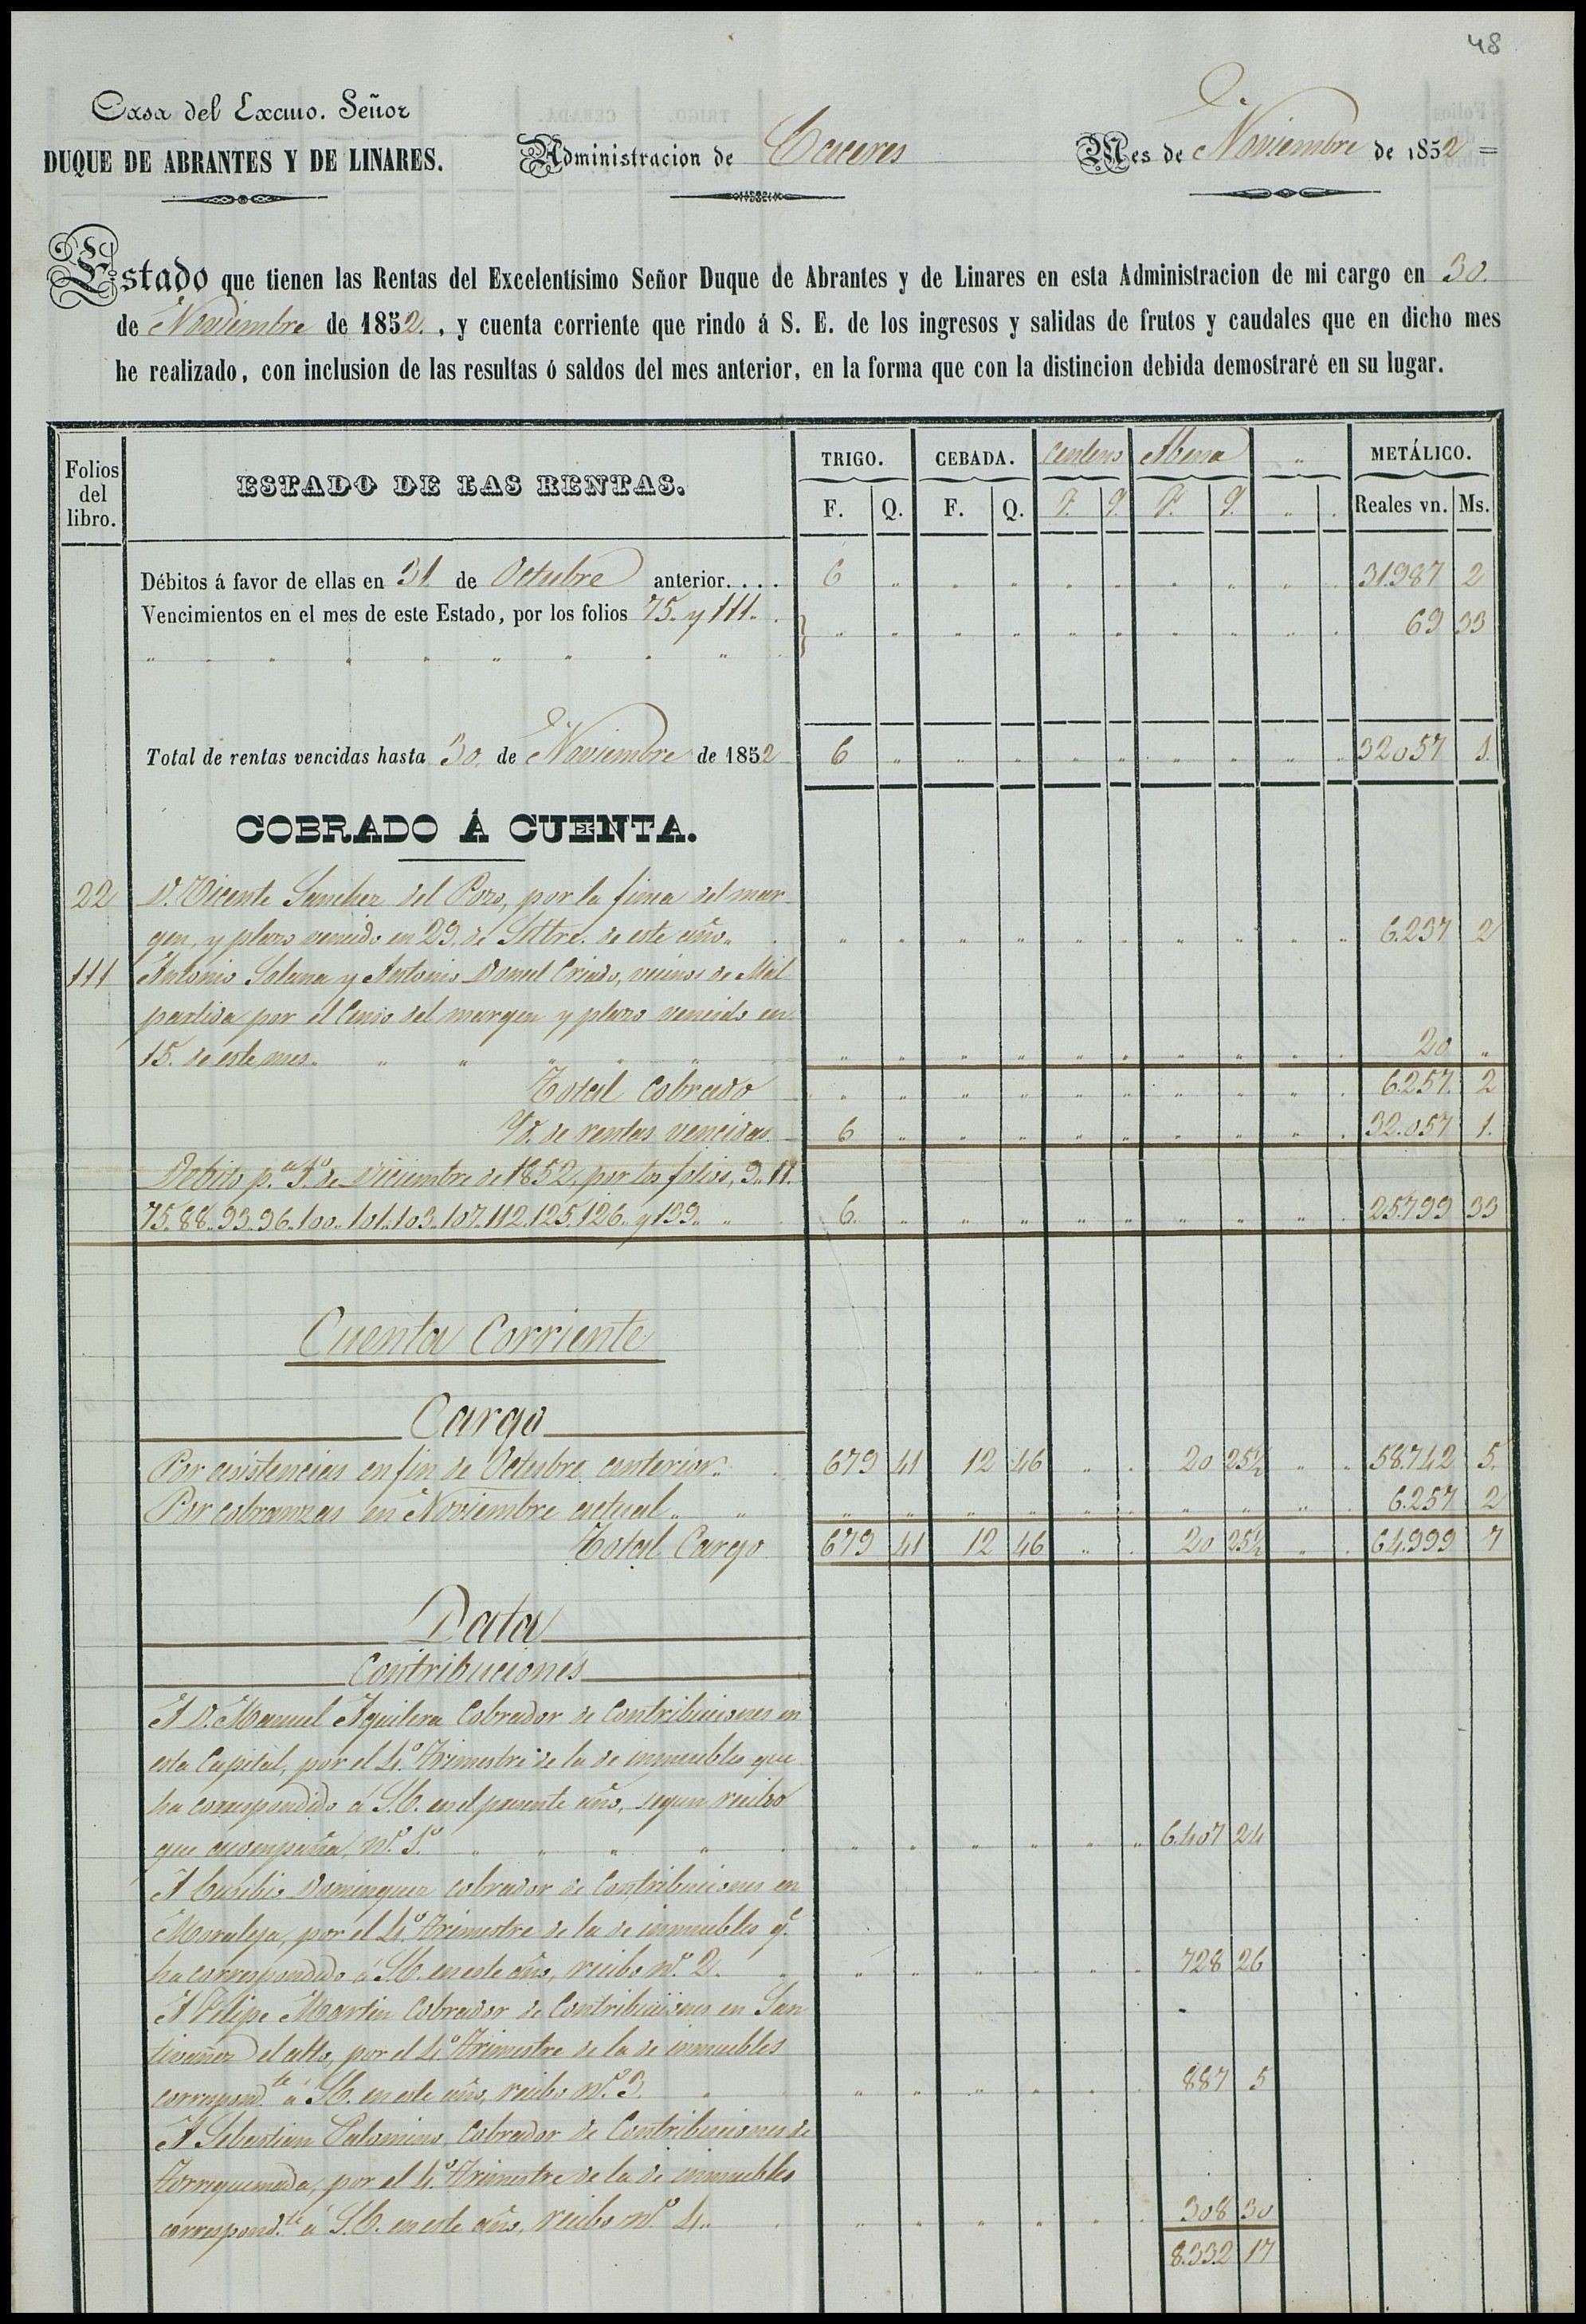 48
Casa del Excmo. Señor
DUQUE DE ABRANTES Y DE LINARES.
Administracion de Caceres
Mes de Noviembre de 1852 =
Estado que tienen las Rentas del Excelentísimo Señor Duque de Abrantes y de Linares en esta Administracion de mi cargo en 30.
de Noviembre de 1852. , y cuenta corriente que rindo á S. E. de los ingresos y salidas de frutos y caudales que en dicho mes
he realizado, con inclusion de las resultas ó saldos del mes anterior, en la forma que con la distincion debida demostraré en su lugar.
Folios del libro. ESTADO DE LAS RENTAS. TRIGO. CEBADA. Centeno Abena " METÁLICO.
F. Q. F. Q. F. Q. F. Q. " . Reales vn. Ms.
Débitos á favor de ellas en 31 de Octubre anterior.... 6 " " " " " " " " . 31.987 2
Vencimientos en el mes de este Estado, por los folios 75. y 111. " " " " " " " " " . 69 33
Total de rentas vencidas hasta 30. de Noviembre de 1852 6 " " " " " " " " " 32057 1.
COBRADO Á CUENTA.
22 D. Vicente Sanchez del Pozo, por la finca del mar-
gen, y plazo vencido en 29. de Settre. de este año. " " " " " " " " " " 6.237 2
111 Antonio Solana y Antonio Donul Criado, vecinos de Mal-
partida por el Censo del margen y plazo vencido en
15. de este mes. " " " " " " " " " . 20 "
Total Cobrado " " " " " " " " " . 6.257. 2
Yd. de rentas vencidas 6 " " " " " " " " . 32.057 1.
Debito p.ª 1.º de Diciembre de 1852, por los folios, 9. 11.
75. 88. 93. 96. 100. 101. 103. 107. 112. 125. 126. y 139. 6. " " " " " " " " . 25.799 33
Cuenta Corriente
Cargo
Por existencias en fin de Octubre anterior. 679 41 12 46 " . 20 25½ " " 58.742 5.
Por cobranzas en Noviembre actual. " " " " " " . " " " . 6.257 2
Total Cargo 679 41 12 46 " . 20 25½ " . 64.999 7
Data
Contribuciones
A D. Manuel Aguilera Cobrador de Contribuciones en
esta Capital, por el 4.º Trimestre de la de inmuebles que
ha correspondido á S.E. en el presente año, segun recibo
que acompaña n.º 1.º " " " " " " 6.407 24
A Eusebio Dominguez cobrador de Contribuciones en
Moraleja, por el 4.º Trimestre de la de inmuebles q.e
ha correspondido á S.E. en este año, recibo n.º 2. " " " " " . 728 26
A Felipe Martin Cobrador de Contribuciones en San-
tivañez el alto, por el 4.º Trimestre de la de inmuebles
correspond.te á S.E. en este año, recibo n.º 3. " " " " . . 887 5
A Sebastian Palomino, Cobrador de Contribuciones de
Torrequemada, por el 4.º Trimestre de la de inmuebles
correspond.te á S.E. en este año, recibo n.º 4. " " " " " . 308 30
8.332 17